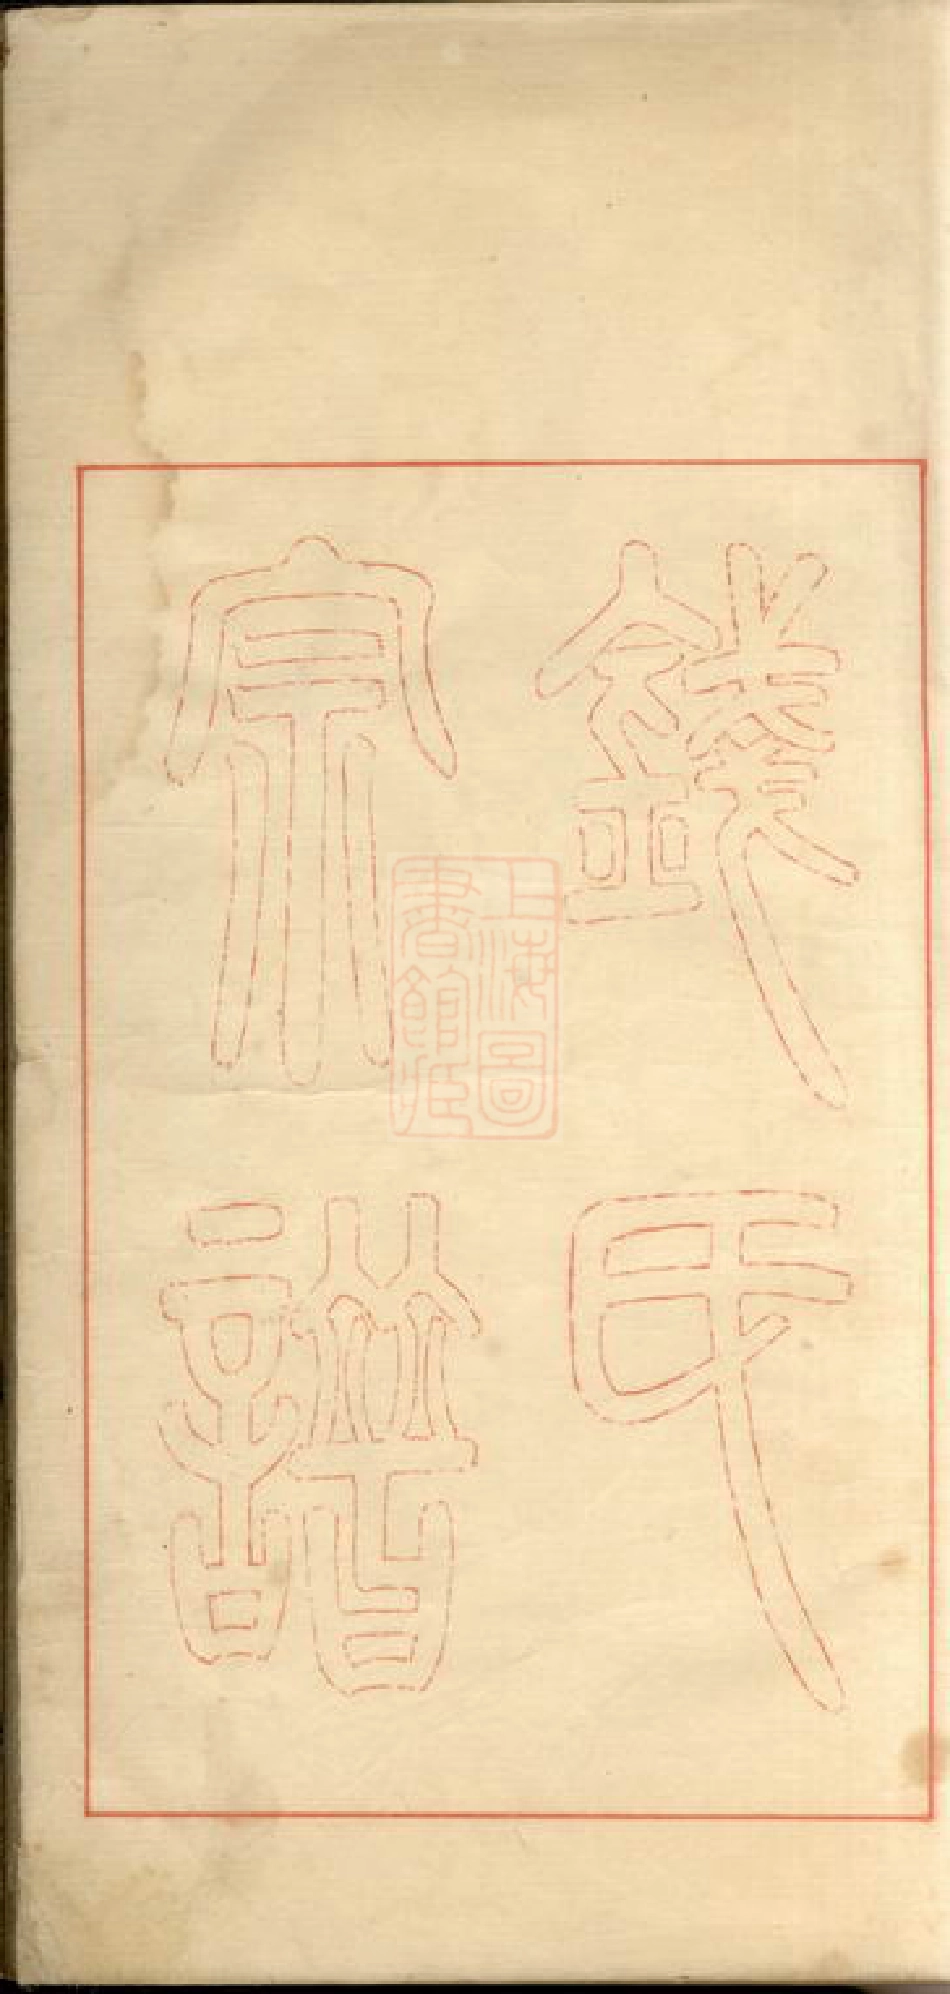 錢氏
宗譜
上海圖
書館藏